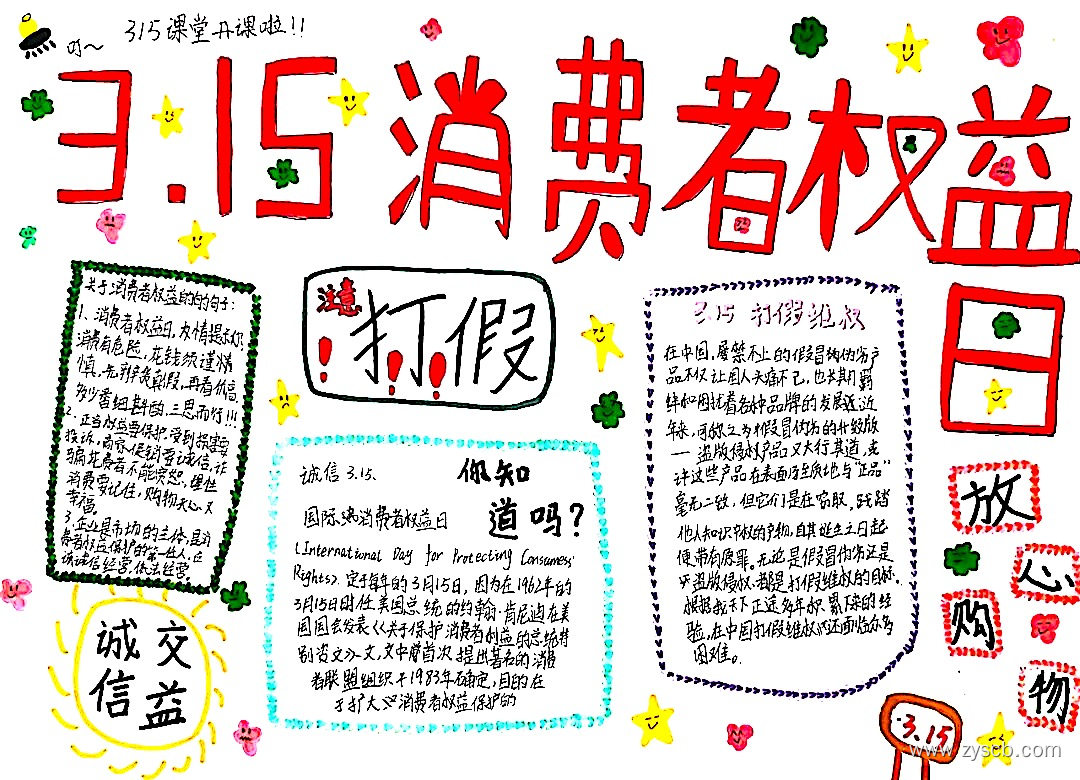 315课堂开课啦!!
叮~
3.15消费者权益日
关于消费者权益的的句子:
1、消费者权益日,友情提示你,
消费有危险,花钱须谨慎
慎,先辨真假,再看低高,
三思而行!!!
2、正当权益要保护,受到损害要
投诉,商家促销要诚信,诈
骗花费者不能容忍,理性
消费要记住,购物天心又
幸福。
3、企业是市场的主体,是消
费者权益保护的第一责任人,应
该诚信经营,依法经营。
注意
!打假
!!
3.15 打假维权
在中国,屡禁不止的假冒伪劣产
品不仅让国人头痛不已,也长期羁
绊和困扰着各种品牌的发展近近
年来,可称之为打假冒伪劣的升级版
— 盗版侵权产品又大行其道,或
许这些产品在表面乃至质地与“正品”
毫无二致,但它们是在窃取、践踏
他人知识产权的产物,自其诞生之日起
便带有原罪。无论是假冒伪劣还是
盗版侵权,都是打假维权的目标。
根据我天下正远多年积累下来的经
验,在中国打假维权仍还面临众多
困难。
诚信 3.15.
你知
道吗?
国际消费者权益日
(International Day for Protecting Consumers'
Rights),定于每年的3月15日,因为在1962年的
3月15日时任美国总统的约翰·肯尼迪在美
国国会发表《关于保护消费者利益的总统特
别咨文》一文,文中首次提出著名的消费
者联盟组织于1983年确定,目的在
于扩大消费者权益保护的
诚信
交益
放
心
购
物
3.15
www.zyscb.com